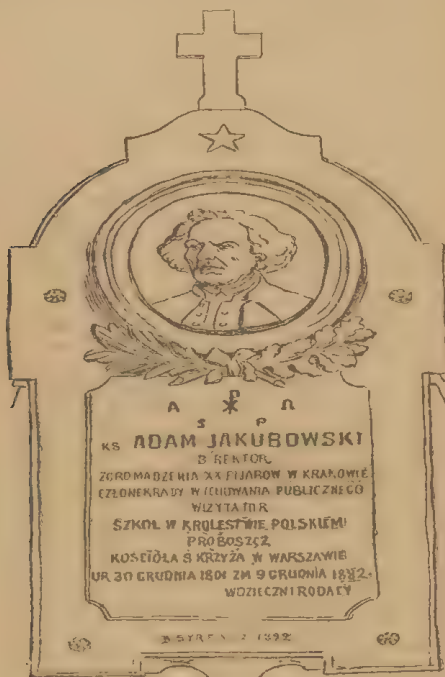 A ☧ Ω
Ś P
KS ADAM JAKUBOWSKI
B REKTOR
ZGROMADZENIA XX PIJARÓW W KRAKOWIE
CZŁONEK RADY WYCHOWANIA PUBLICZNEGO
WIZYTATOR
SZKÓŁ W KRÓLESTWIE POLSKIEM
PROBOSZCZ
KOŚCIOŁA Ś KRZYŻA W WARSZAWIE
UR 30 GRUDNIA 1801 ZM 9 GRUDNIA 1882.
WDZIĘCZNI RODACY
1892